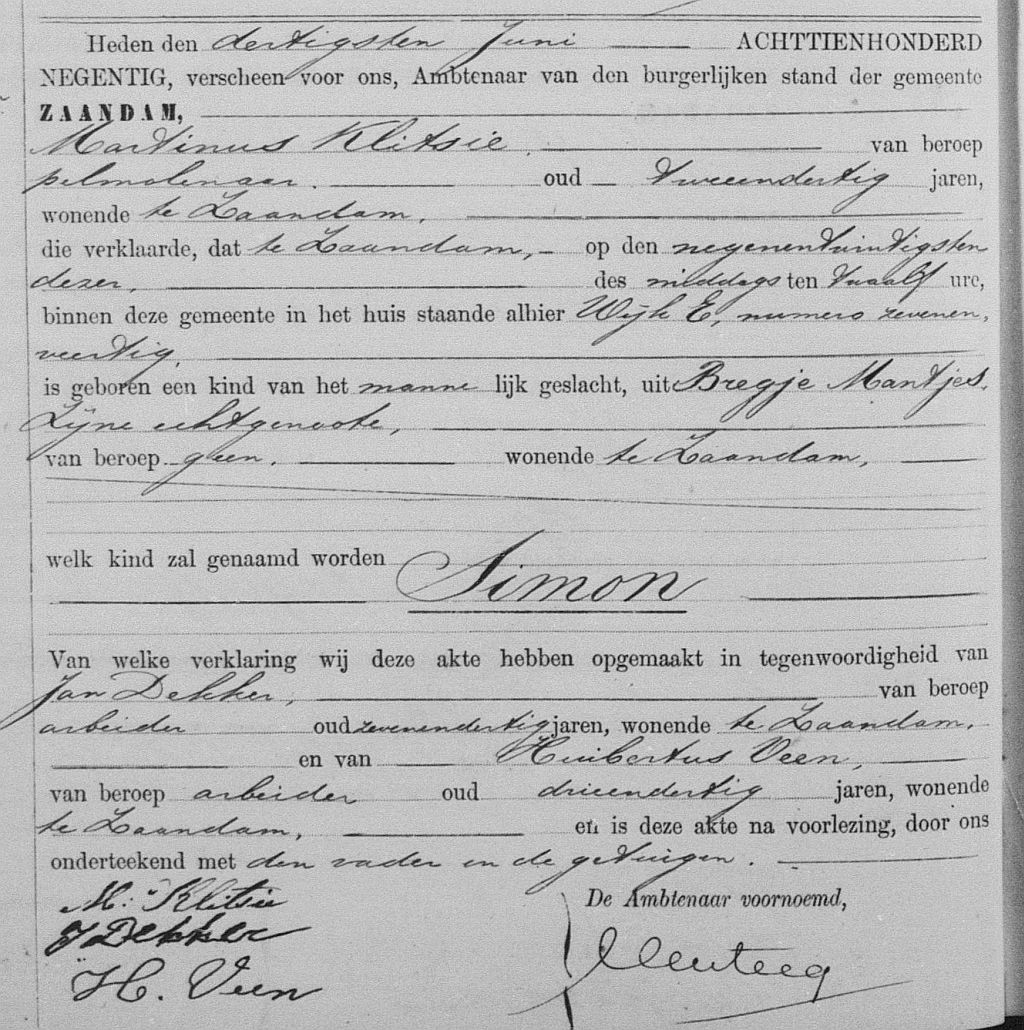 Heden den dertigsten Juni ACHTTIENHONDERD
NEGENTIG, verscheen voor ons, Ambtenaar van den burgerlijken stand der gemeente
ZAANDAM,
Martinus Klitsie, van beroep
pelmolenaar. oud tweeendertig jaren,
wonende te Zaandam,
die verklaarde, dat te Zaandam, op den negenentwintigsten
dezer, des middags ten twaalf ure,
binnen deze gemeente in het huis staande alhier Wijk E, numero zevenen,
veertig,
is geboren een kind van het manne lijk geslacht, uit Bregje Mantjes,
Zijne echtgenoote,
van beroep geen, wonende te Zaandam,
welk kind zal genaamd worden Simon
Van welke verklaring wij deze akte hebben opgemaakt in tegenwoordigheid van
Jan Dekker, van beroep
arbeider oud zevenendertig jaren, wonende te Zaandam,
en van Huibertus Veen,
van beroep arbeider oud drieendertig jaren, wonende
te Zaandam, en is deze akte na voorlezing, door ons
onderteekend met den vader en de getuigen.
M. Klitsie De Ambtenaar voornoemd,
J Dekker
H. Veen